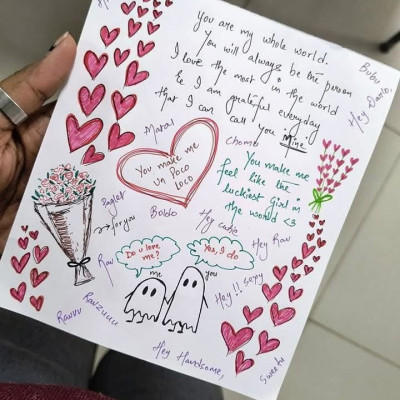 You are my whole world.
You will always be the person
I love the most in the world
& I am grateful everyday
that I can call you Mine
Bubu
Hey Danto,
Maras
Chomo
You make me
Un Poco
Loco
You make me
feel like the
luckiest girl in
the world <3
Paglet
→ for you
Boldo
Hey cutie
Hey Rav
Rav
Do u love
me?
Yes, I do
me
you
Hey!! sexy
Ravzuuu
Ravuu
Hey Handsome,
Sweetu